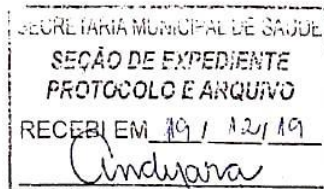 SECRETARIA MUNICIPAL DE SAÚDE
SEÇÃO DE EXPEDIENTE
PROTOCOLO E ARQUIVO
RECEBI EM 19 / 12 / 19